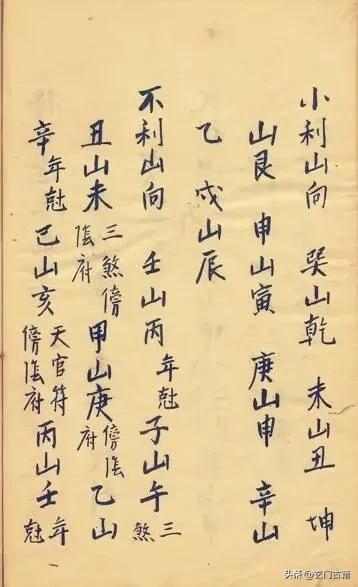 小利山向 巽山乾 未山丑 坤
山艮 申山寅 庚山申 辛山
乙 戌山辰
不利山向 壬山丙 年尅 子山午 三煞
丑山未 三煞傍陰府 甲山庚 傍陰府 乙山
辛 年尅 巳山亥 天官符傍陰府 丙山壬 年尅
头条 @玄门古籍